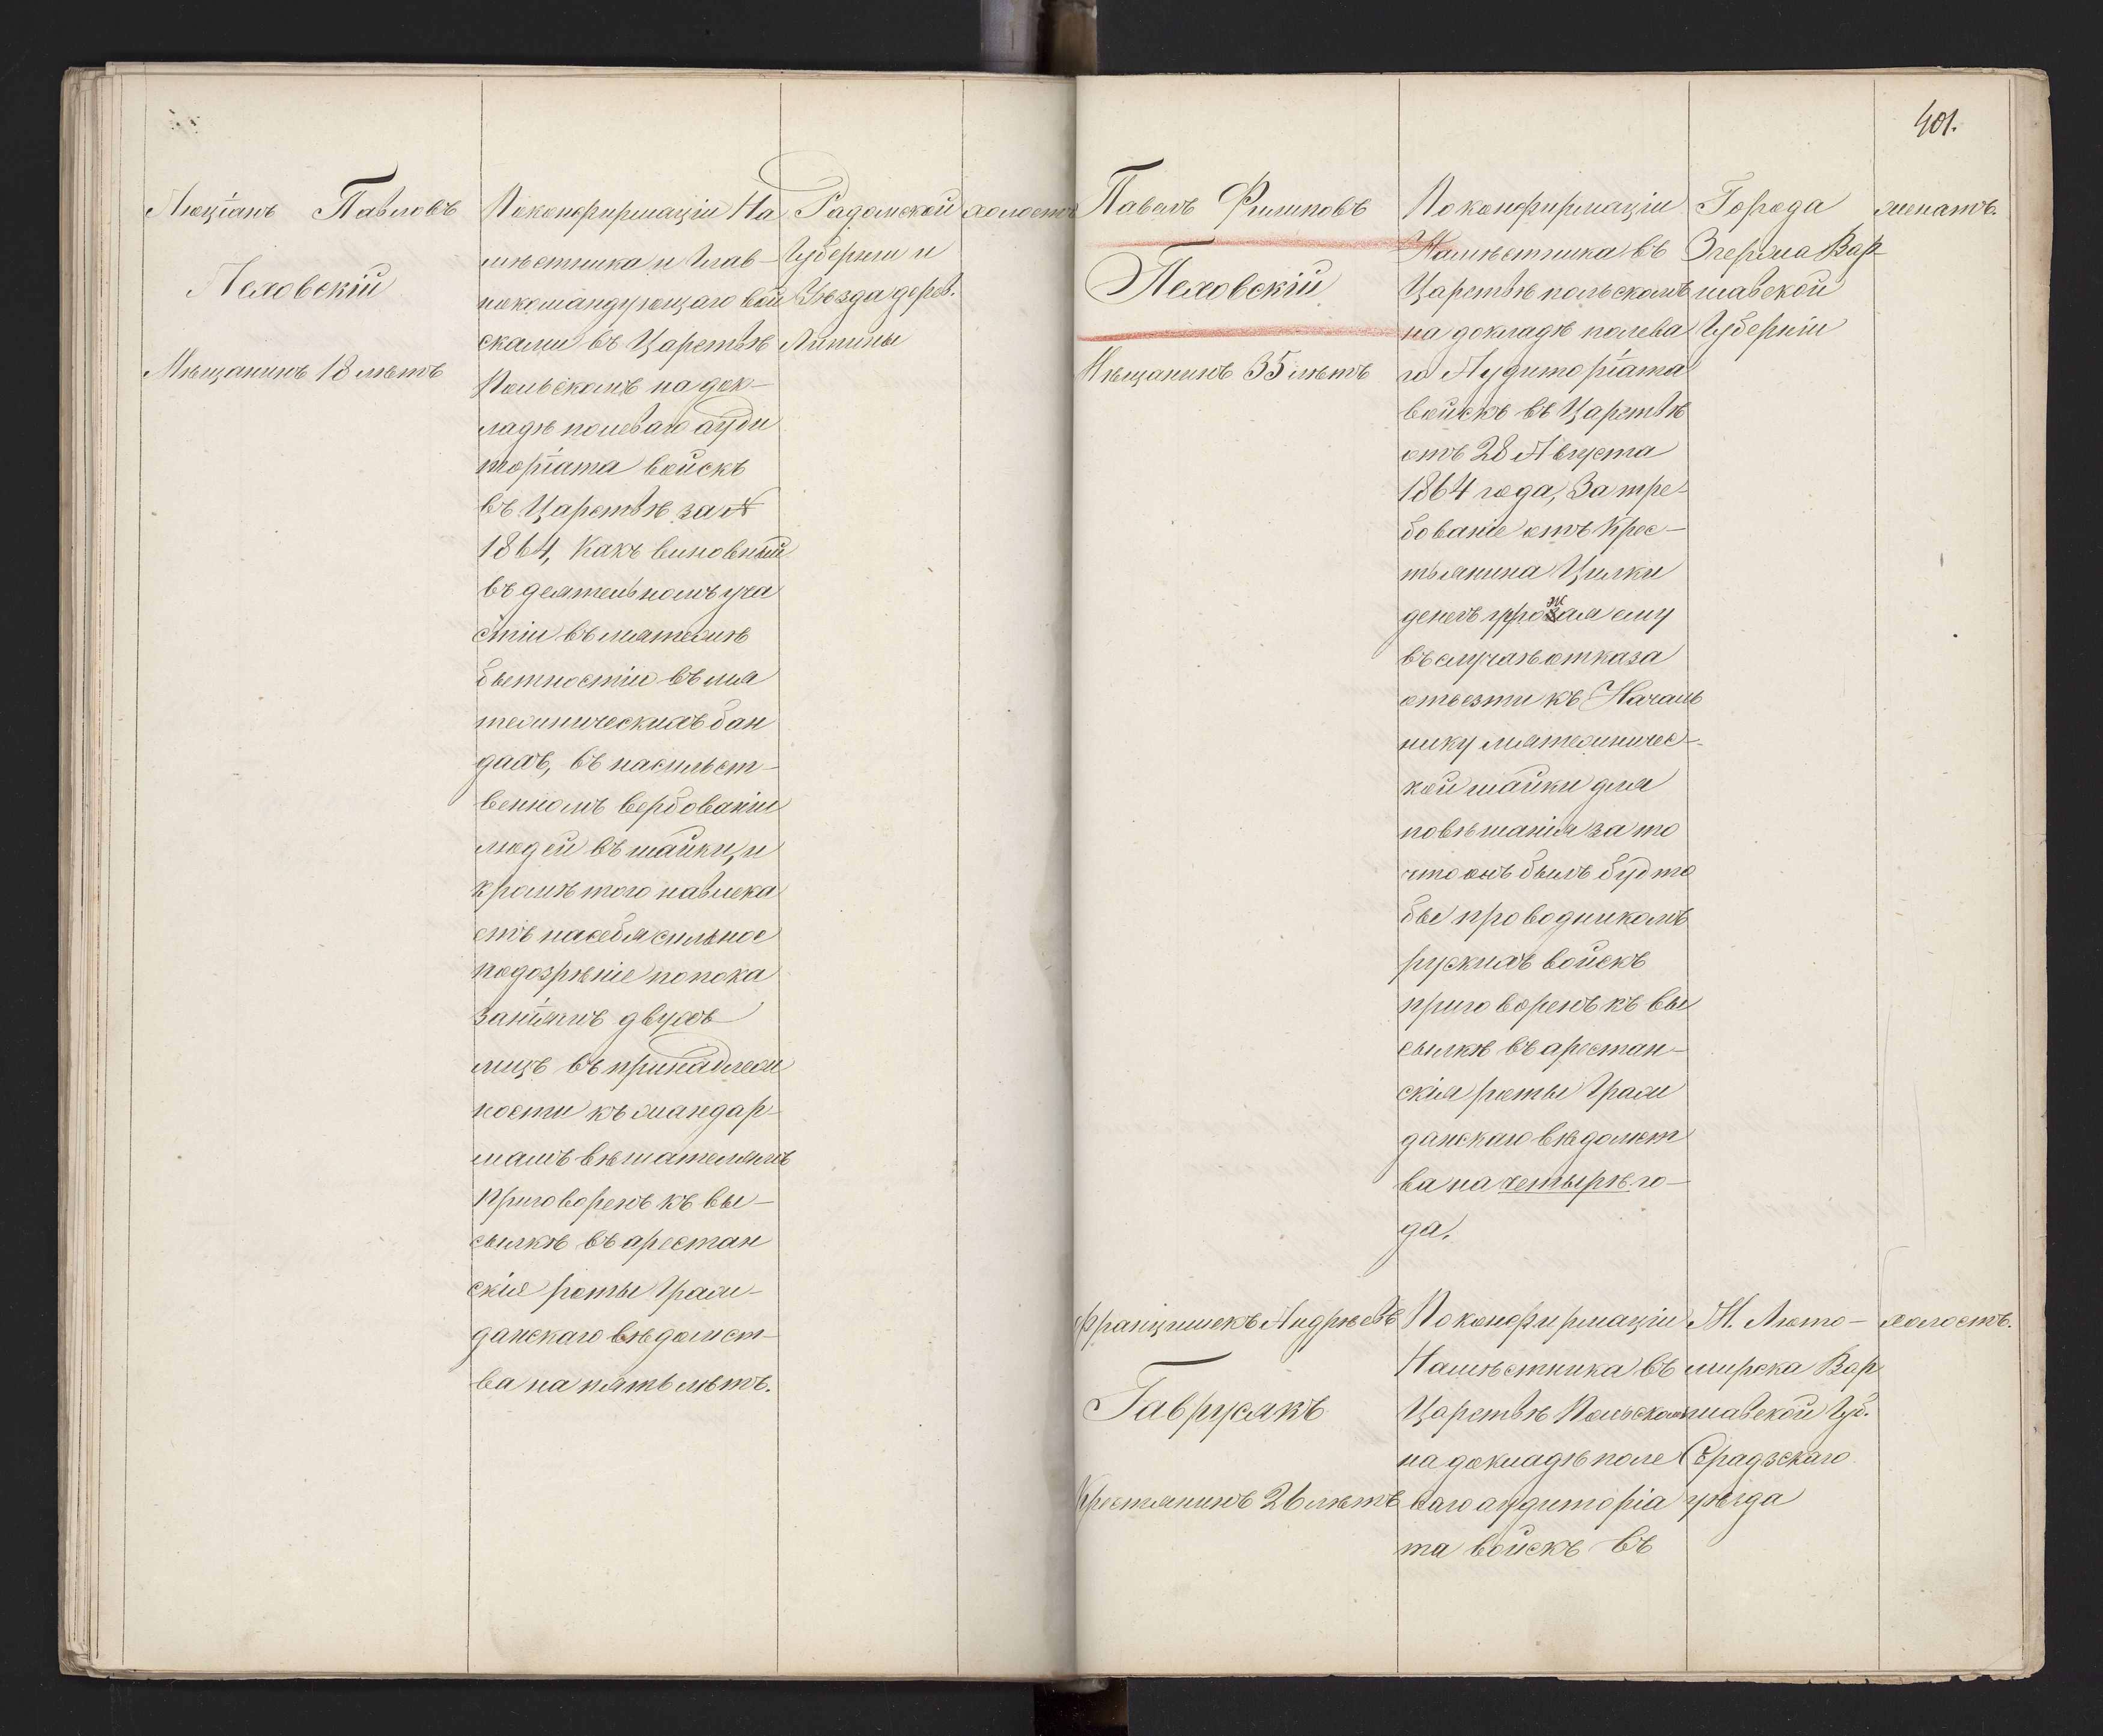 Люціанъ Павловъ
Леховскій
Мѣщанинъ 18 лѣтъ
По конфирмаціи На
мѣстника и Глав-
нокомандующаго вой
сками въ Царствѣ
Польскомъ на док-
ладѣ полеваго ауди
торіата войскъ
въ Царствѣ за №
1864, Какъ виновный
въ деятельномъ уча
стіи въ мятежѣ
бытностіи въ мя
тежническихъ бан
дахъ, въ насильст-
венномъ вербованіи
людей въ шайки, и
кромѣ того навлека
етъ на себя сильное
подозрѣніе по пока
заніямъ двухъ
лицъ въ принадлеж
ности къ жандар-
мамъ вѣшателямъ
Приговоренъ къ вы-
сылкѣ въ арестан
скіе роты Граж-
данскаго вѣдомст-
ва на пять лѣтъ.
Радомской
Губерніи и
Уѣзда дерев.
Липины
холостъ
401.
Павелъ Филиповъ
Пеховскій
Мѣщанинъ 35 лѣтъ
По конфирмаціи
Намѣстника въ
Царствѣ польскомъ
на докладѣ полева
го Аудиторіата
войскъ въ Царствѣ
отъ 28 Августа
1864 года, За тре-
бованіе отъ Крес-
тьянина Цилки
денегъ грожая ему
въ случаѣ отказа
отвезти къ Началь
нику мятежничес-
кой шайки для
повѣшанія за то
что онъ былъ будто
бы проводникомъ
рускихъ войскъ
приговоренъ къ вы
сылкѣ въ арестан-
скія роты Граж
данскаго вѣдомст
ва на четырѣ го-
да.
Города
Згержа Вар-
шавской
Губерніи
женатъ.
Францишекъ Андрѣевъ
Гаврусякъ
Крестянинъ 26 лѣтъ
По конфирмаціи
Намѣстника въ
Царствѣ Польскомъ
на докладѣ поле
ваго аудиторіа
та войскъ въ
М. Люто-
мирска Вар
шавской Губ.
Сѣрадзскаго
уѣзда
холостъ.